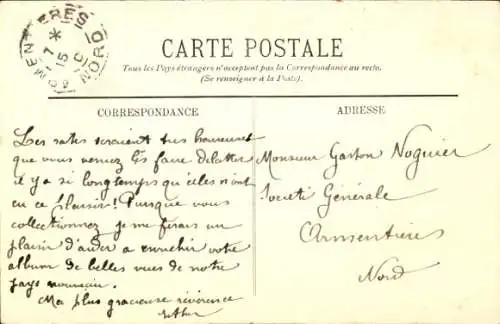 ARMENTIÈRES
7 * 15
10
NORD
CARTE POSTALE
Tous les Pays étrangers n'acceptent pas la Correspondance au recto.
(Se renseigner à la Poste).
CORRESPONDANCE
ADRESSE
Les rates seraient très heureuses
que vous veniez les faire dilatter
il y a si longtemps qu'elles n'ont
eu ce plaisir! Puisque vous
collectionnez je me ferais un
plaisir d'aider a enrichir votre
album de belles vues de notre
pays
Ma plus gracieuse révérence
Monsieur Gaston Noguier
Société Générale
Armentières
Nord